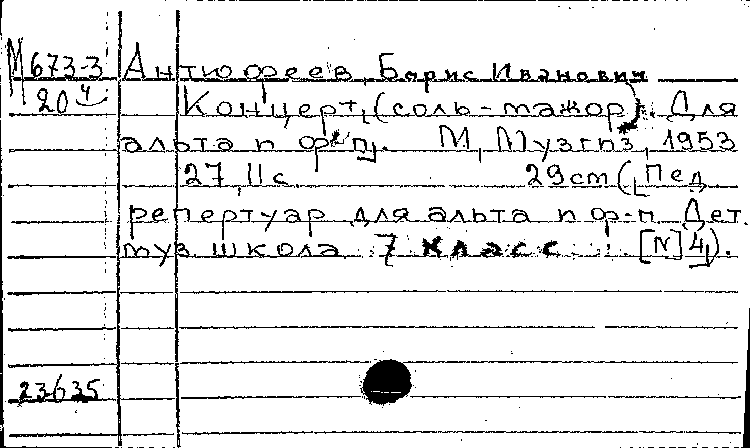 М 673-3 Антюфеев, Борис Иванович
20 ч Концерт, (соль-мажор). Для
альта и ф-п. М, Музгиз, 1953
27, 11 с. 29 cm ([Пед
репертуар для альта и ф-п. Дет.
муз. школа 7 класс. [N] 4).
23635